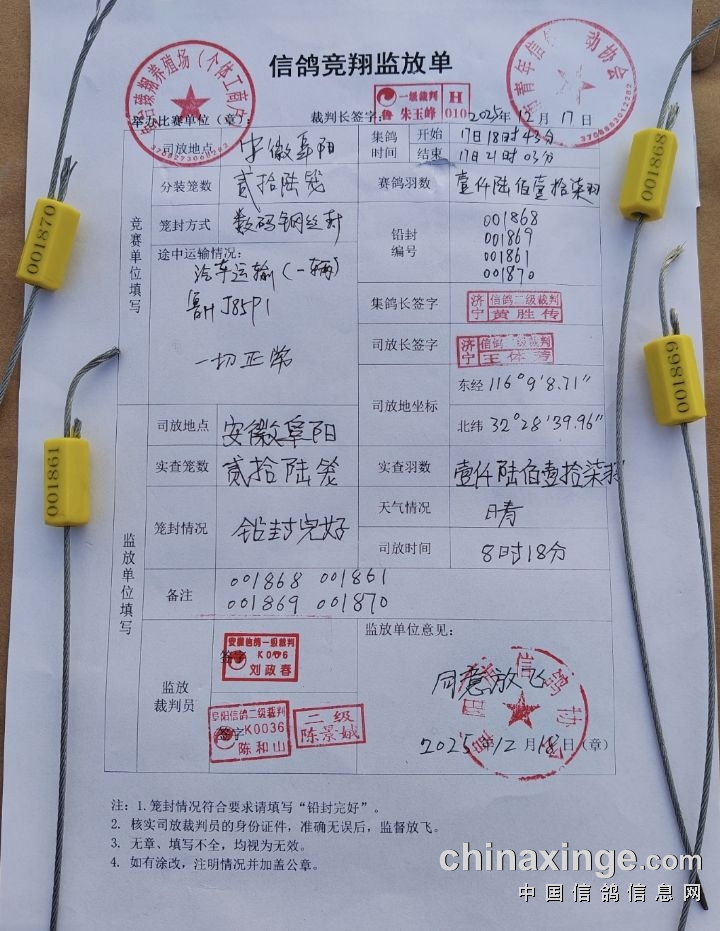 信鸽竞翔监放单
臻翔养殖场（个体工商户）
3708273068282
青年信鸽 动协会
3708992012282
举办比赛单位（章）
裁判长签字：
一级裁判 H
鲁 朱玉峰 010
2025年12月17日
竞赛单位填写
司放地点 安徽阜阳
集鸽时间 开始 17日18时43分
结束 17日21时03分
分装笼数 贰拾陆笼
赛鸽羽数 壹仟陆佰壹拾柒羽
笼封方式 数码钢丝封
铅封编号
001868
001869
001861
001870
途中运输情况：
汽车运输（一辆）
鲁H J85P1
一切正常
集鸽长签字 济宁 信鸽二级裁判 黄胜传
司放长签字 济宁 信鸽二级裁判 王体涛
司放地坐标 东经 116°9'8.71"
北纬 32°28'39.96"
监放单位填写
司放地点 安徽阜阳
实查笼数 贰拾陆笼
实查羽数 壹仟陆佰壹拾柒羽
笼封情况 铅封完好
天气情况 晴
司放时间 8时18分
备注
001868 001861
001869 001870
监放裁判员
签字
安徽信鸽一级裁判
K006
刘政春
签字
阜阳信鸽二级裁判
K0036
陈和山
二级
陈景娥
监放单位意见：
同意放飞
信鸽协会
2025年12月18日（章）
注：1.笼封情况符合要求请填写“铅封完好”。
2. 核实司放裁判员的身份证件，准确无误后，监督放飞。
3. 无章、填写不全，均视为无效。
4. 如有涂改，注明情况并加盖公章。
001870
001861
001868
001869
chinaxinge.com
中国信鸽信息网